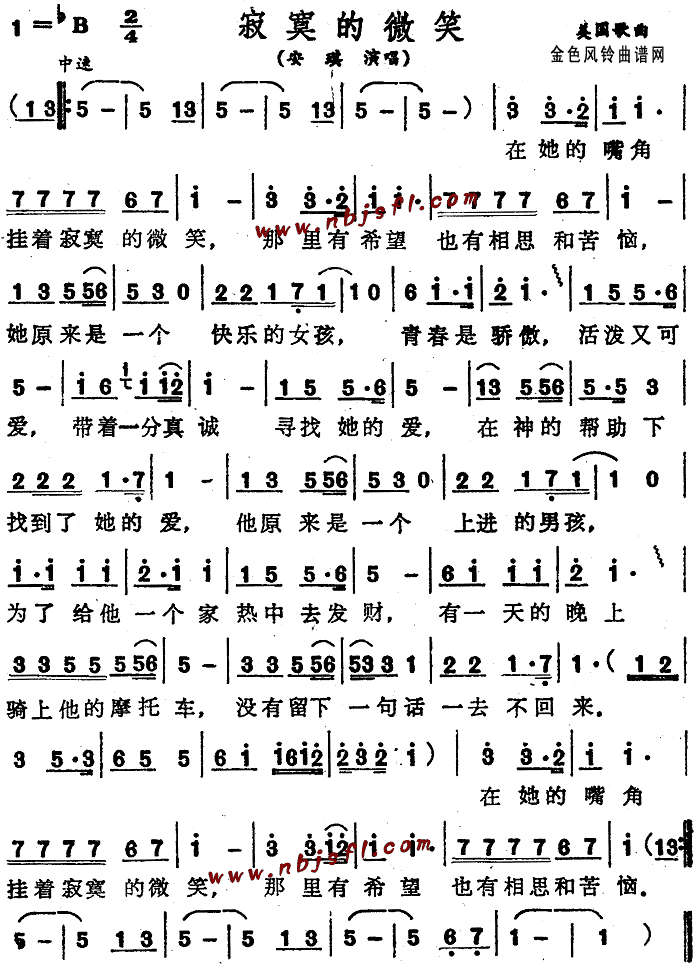 1=♭B 2/4 寂寞的微笑 美国歌曲
中速 (安琪 演唱) 金色风铃曲谱网
( 1 3 ‖: 5 - | 5 1 3 | 5 - | 5 1 3 | 5 - | 5 - ) | 3 3·2 | 1 1·
在她的嘴角
7 7 7 7 6 7 | 1 - | 3 3·2 | 1 1· | 7 7 7 7 6 7 | 1 -
www.nbjsfl.com
挂着寂寞的微笑, 那里有希望 也有相思和苦恼,
1 3 5 56 | 5 3 0 | 2 2 1 7 1 | 1 0 | 6 1·1 | 2 1· | 1 5 5·6
她原来是一个 快乐的女孩, 青春是骄傲, 活泼又可
5 - | 1 6 1 1 12 | 1 - | 1 5 5·6 | 5 - | 13 556 | 5·5 3
爱, 带着一分真诚 寻找她的爱, 在神的帮助下
2 2 2 1·7 | 1 - | 1 3 5 56 | 5 3 0 | 2 2 1 7 1 | 1 0
找到了她的爱, 他原来是一个 上进的男孩,
1·1 1 1 | 2·1 1 | 1 5 5·6 | 5 - | 6 1 1 1 | 2 1·
为了给他一个家热中去发财, 有一天的晚上
3 3 5 5 556 | 5 - | 3 3 5 56 | 53 3 1 | 2 2 1·7 | 1·( 1 2
骑上他的摩托车, 没有留下一句话一去不回来。
3 5·3 | 6 5 5 | 6 1 1612 | 2 3 2 | 1 ) | 3 3·2 | 1 1·
在她的嘴角
7 7 7 7 6 7 | 1 - | 3 3·12 | 1 1· | 7 7 7 7 6 7 | 1 ( 13 :‖
www.nbjsfl.com
挂着寂寞的微笑, 那里有希望 也有相思和苦恼。
5 - | 5 1 3 | 5 - | 5 1 3 | 5 - | 5 6 7 | 1 - | 1 ) ‖